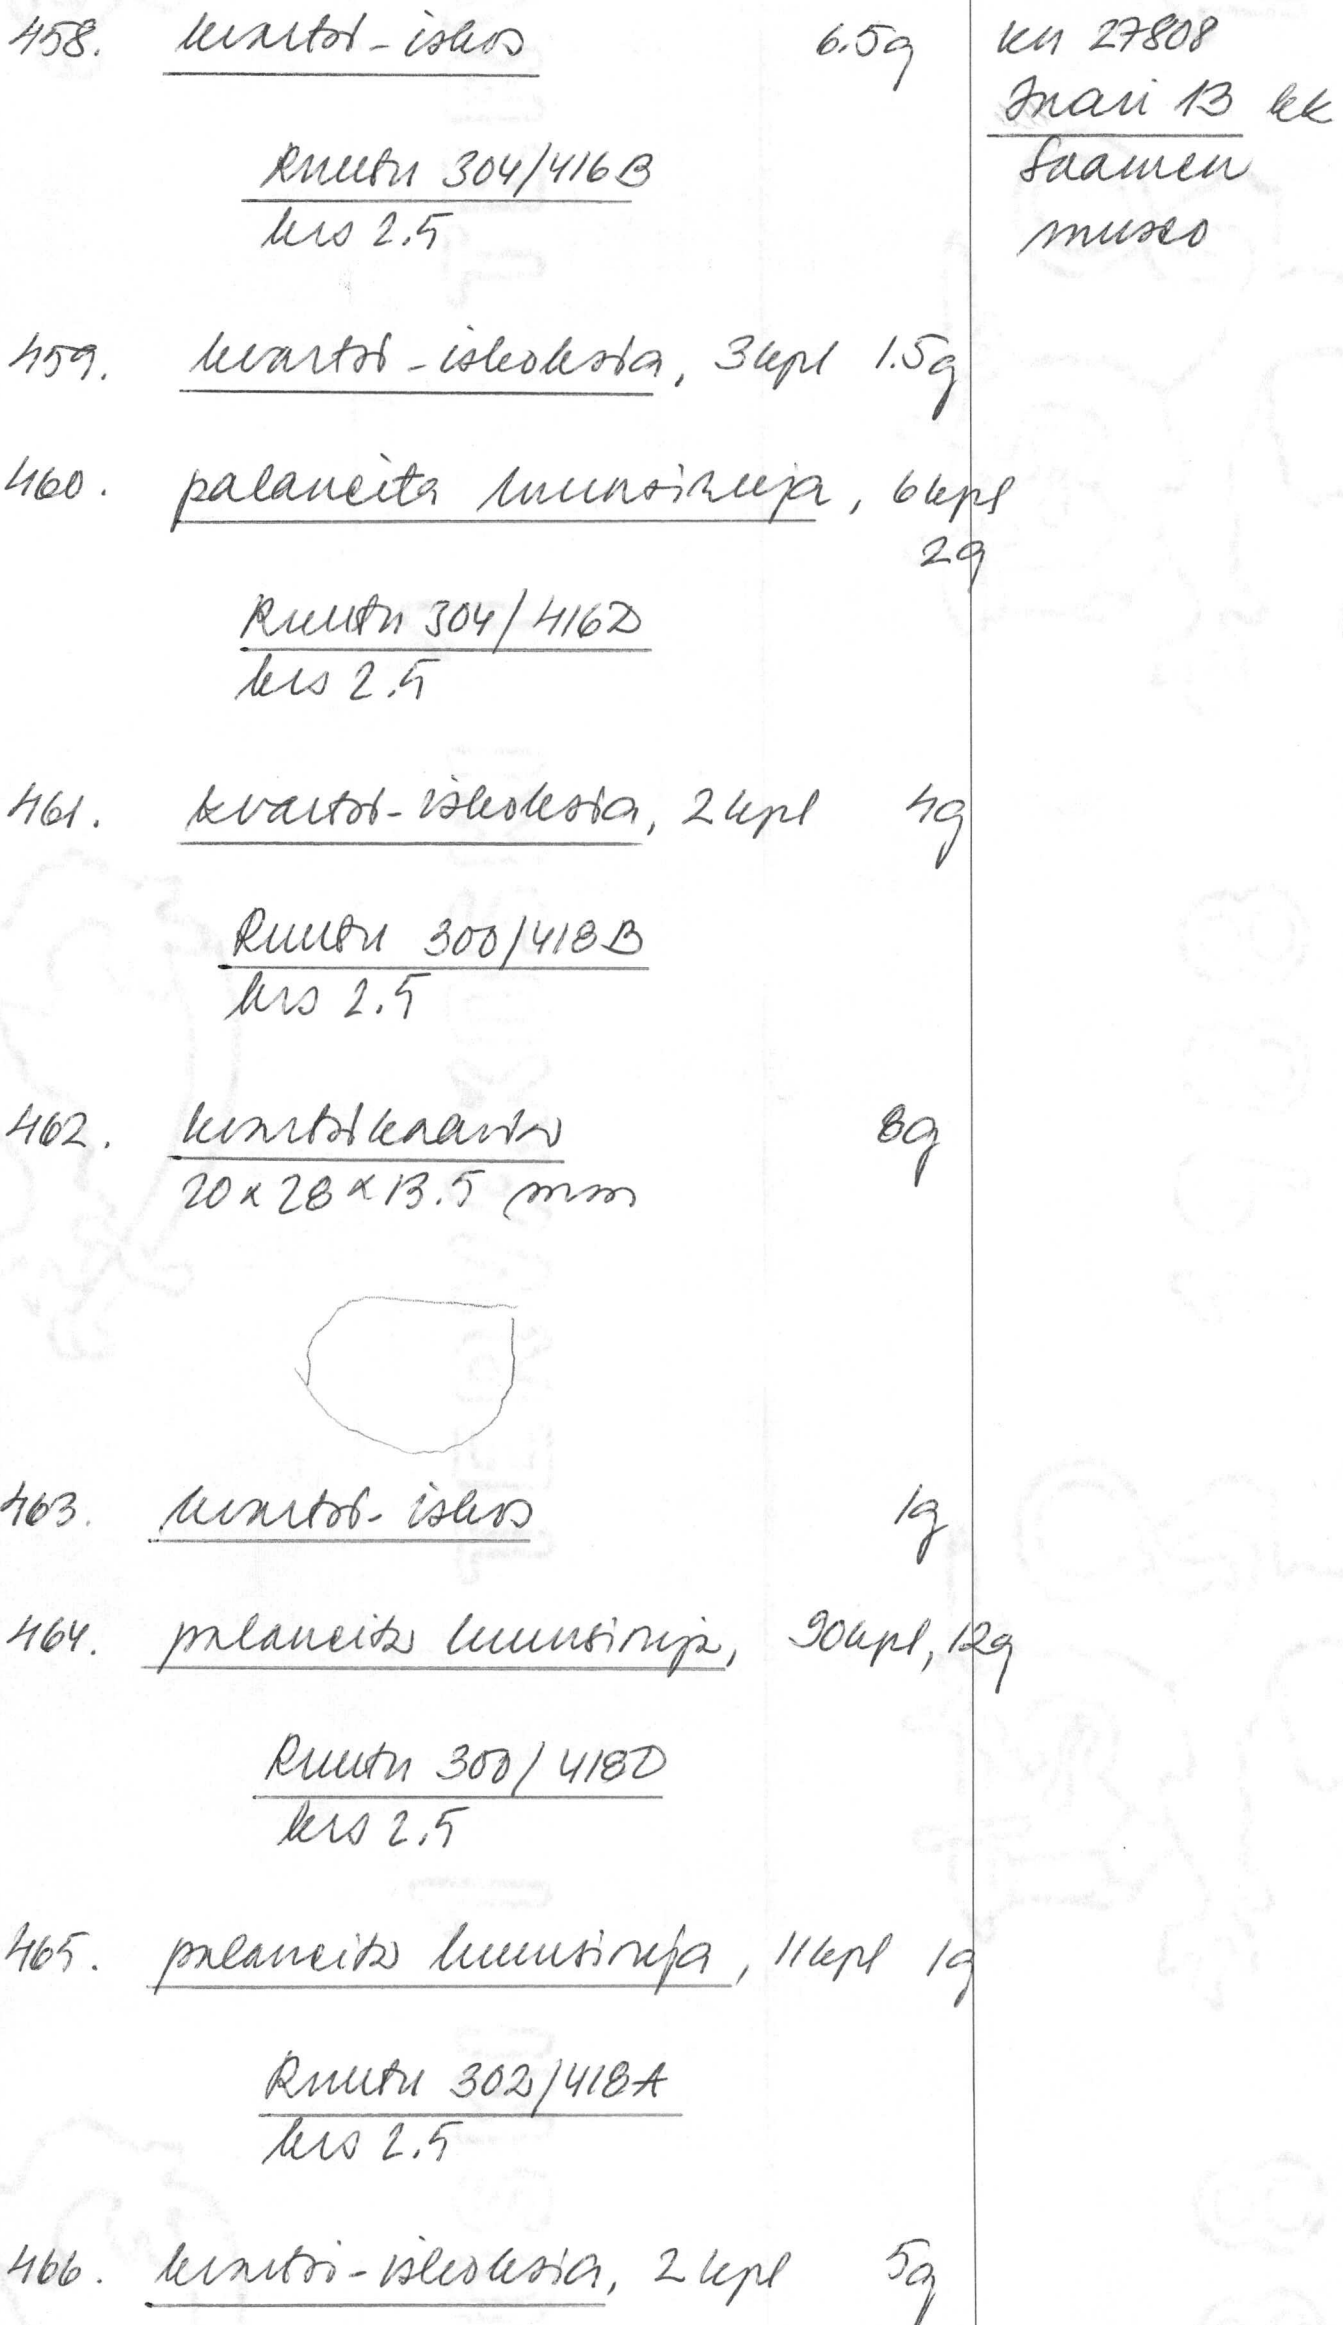 458. kvartsi-iskos 6.5g
KM 27808
Inari 13 kk
Saamen
museo
Ruutu 304/416B
krs 2.5
459. kvartsi-iskoksia, 3 kpl 1.5g
460. palaneita luunsiruja, 6 kpl
2g
Ruutu 304/416D
krs 2.5
461. kvartsi-iskoksia, 2 kpl 4g
Ruutu 300/418B
krs 2.5
462. kvartsikaavin 8g
20 x 28 x 13.5 mm
463. kvartsi-iskos 1g
464. palaneita luunsiruja, 90 kpl, 12g
Ruutu 300/418D
krs 2.5
465. palaneita luunsiruja, 11 kpl 1g
Ruutu 302/418A
krs 2.5
466. kvartsi-iskoksia, 2 kpl 5g